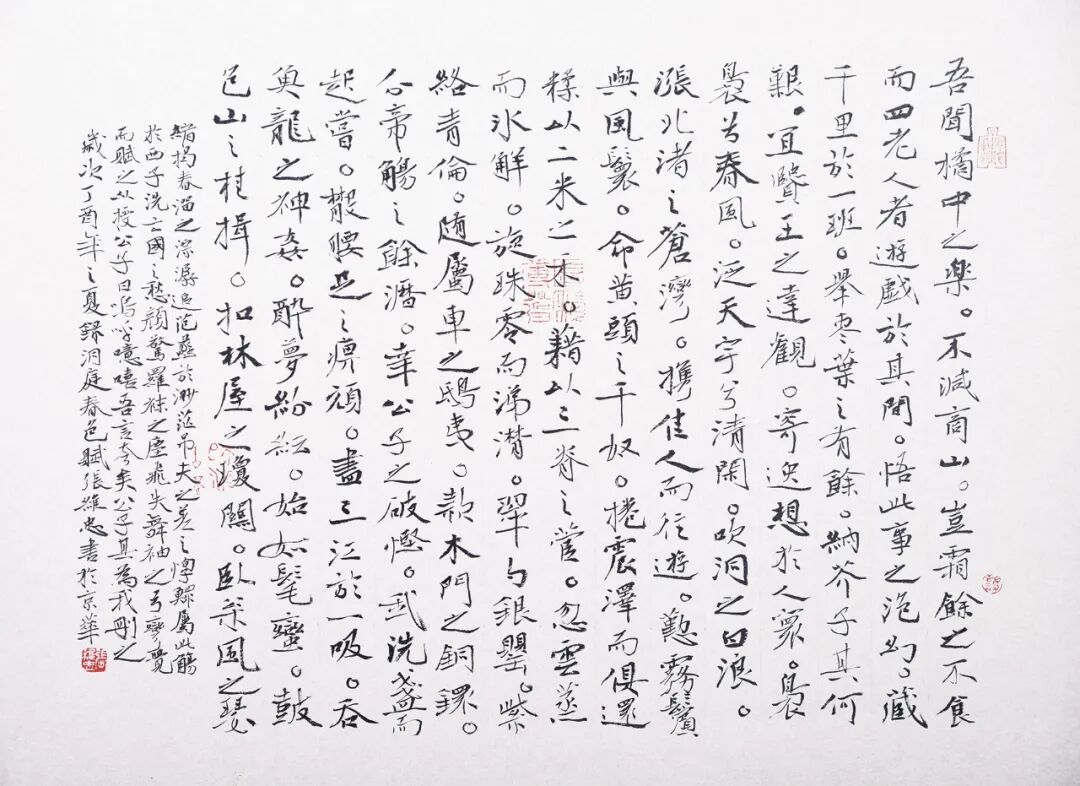 吾聞橘中之樂。不減商山。豈霜餘之不食
而四老人者遊戲於其間。悟此事之泡幻。藏
千里於一班。舉枣葉之有餘。納芥子其何
艱。宜賢王之達觀。寄逸想於人寰。裊
裊兮春風。泛天宇兮清閑。吹洞之白浪。
漲北渚之蒼灣。攜佳人而往遊。懃霧鬢
與風鬟。命黄頭之千奴。捲震澤而俱還
糅以二米之禾。藉以三脊之菅。忽雲蒸
而冰解。旋珠零而涕潸。翠勺銀罌。紫
絡青倫。随屬車之鴟夷。款木門之銅鐶。
分帝觴之餘瀝。幸公子之破慳。我洗盞而
起嘗。散腰足之痹頑。盡三江於一吸。吞
魚龍之神姦。醉夢紛紜。始如髦蠻。鼓
包山之桂楫。扣林屋之瓊關。臥松風之瑟
縮揭春溜之淙潺追范蠡於渺茫吊夫之差之惸鰥屬此觴
於西子洗亡國之愁顏驚羅袜之塵飛失舞袖之弓彎覺
而賦之以授公子曰嗚呼噫嘻吾言夸矣公子其為我刪之
歲次丁酉年之夏錄洞庭春色賦張維忠書於京華